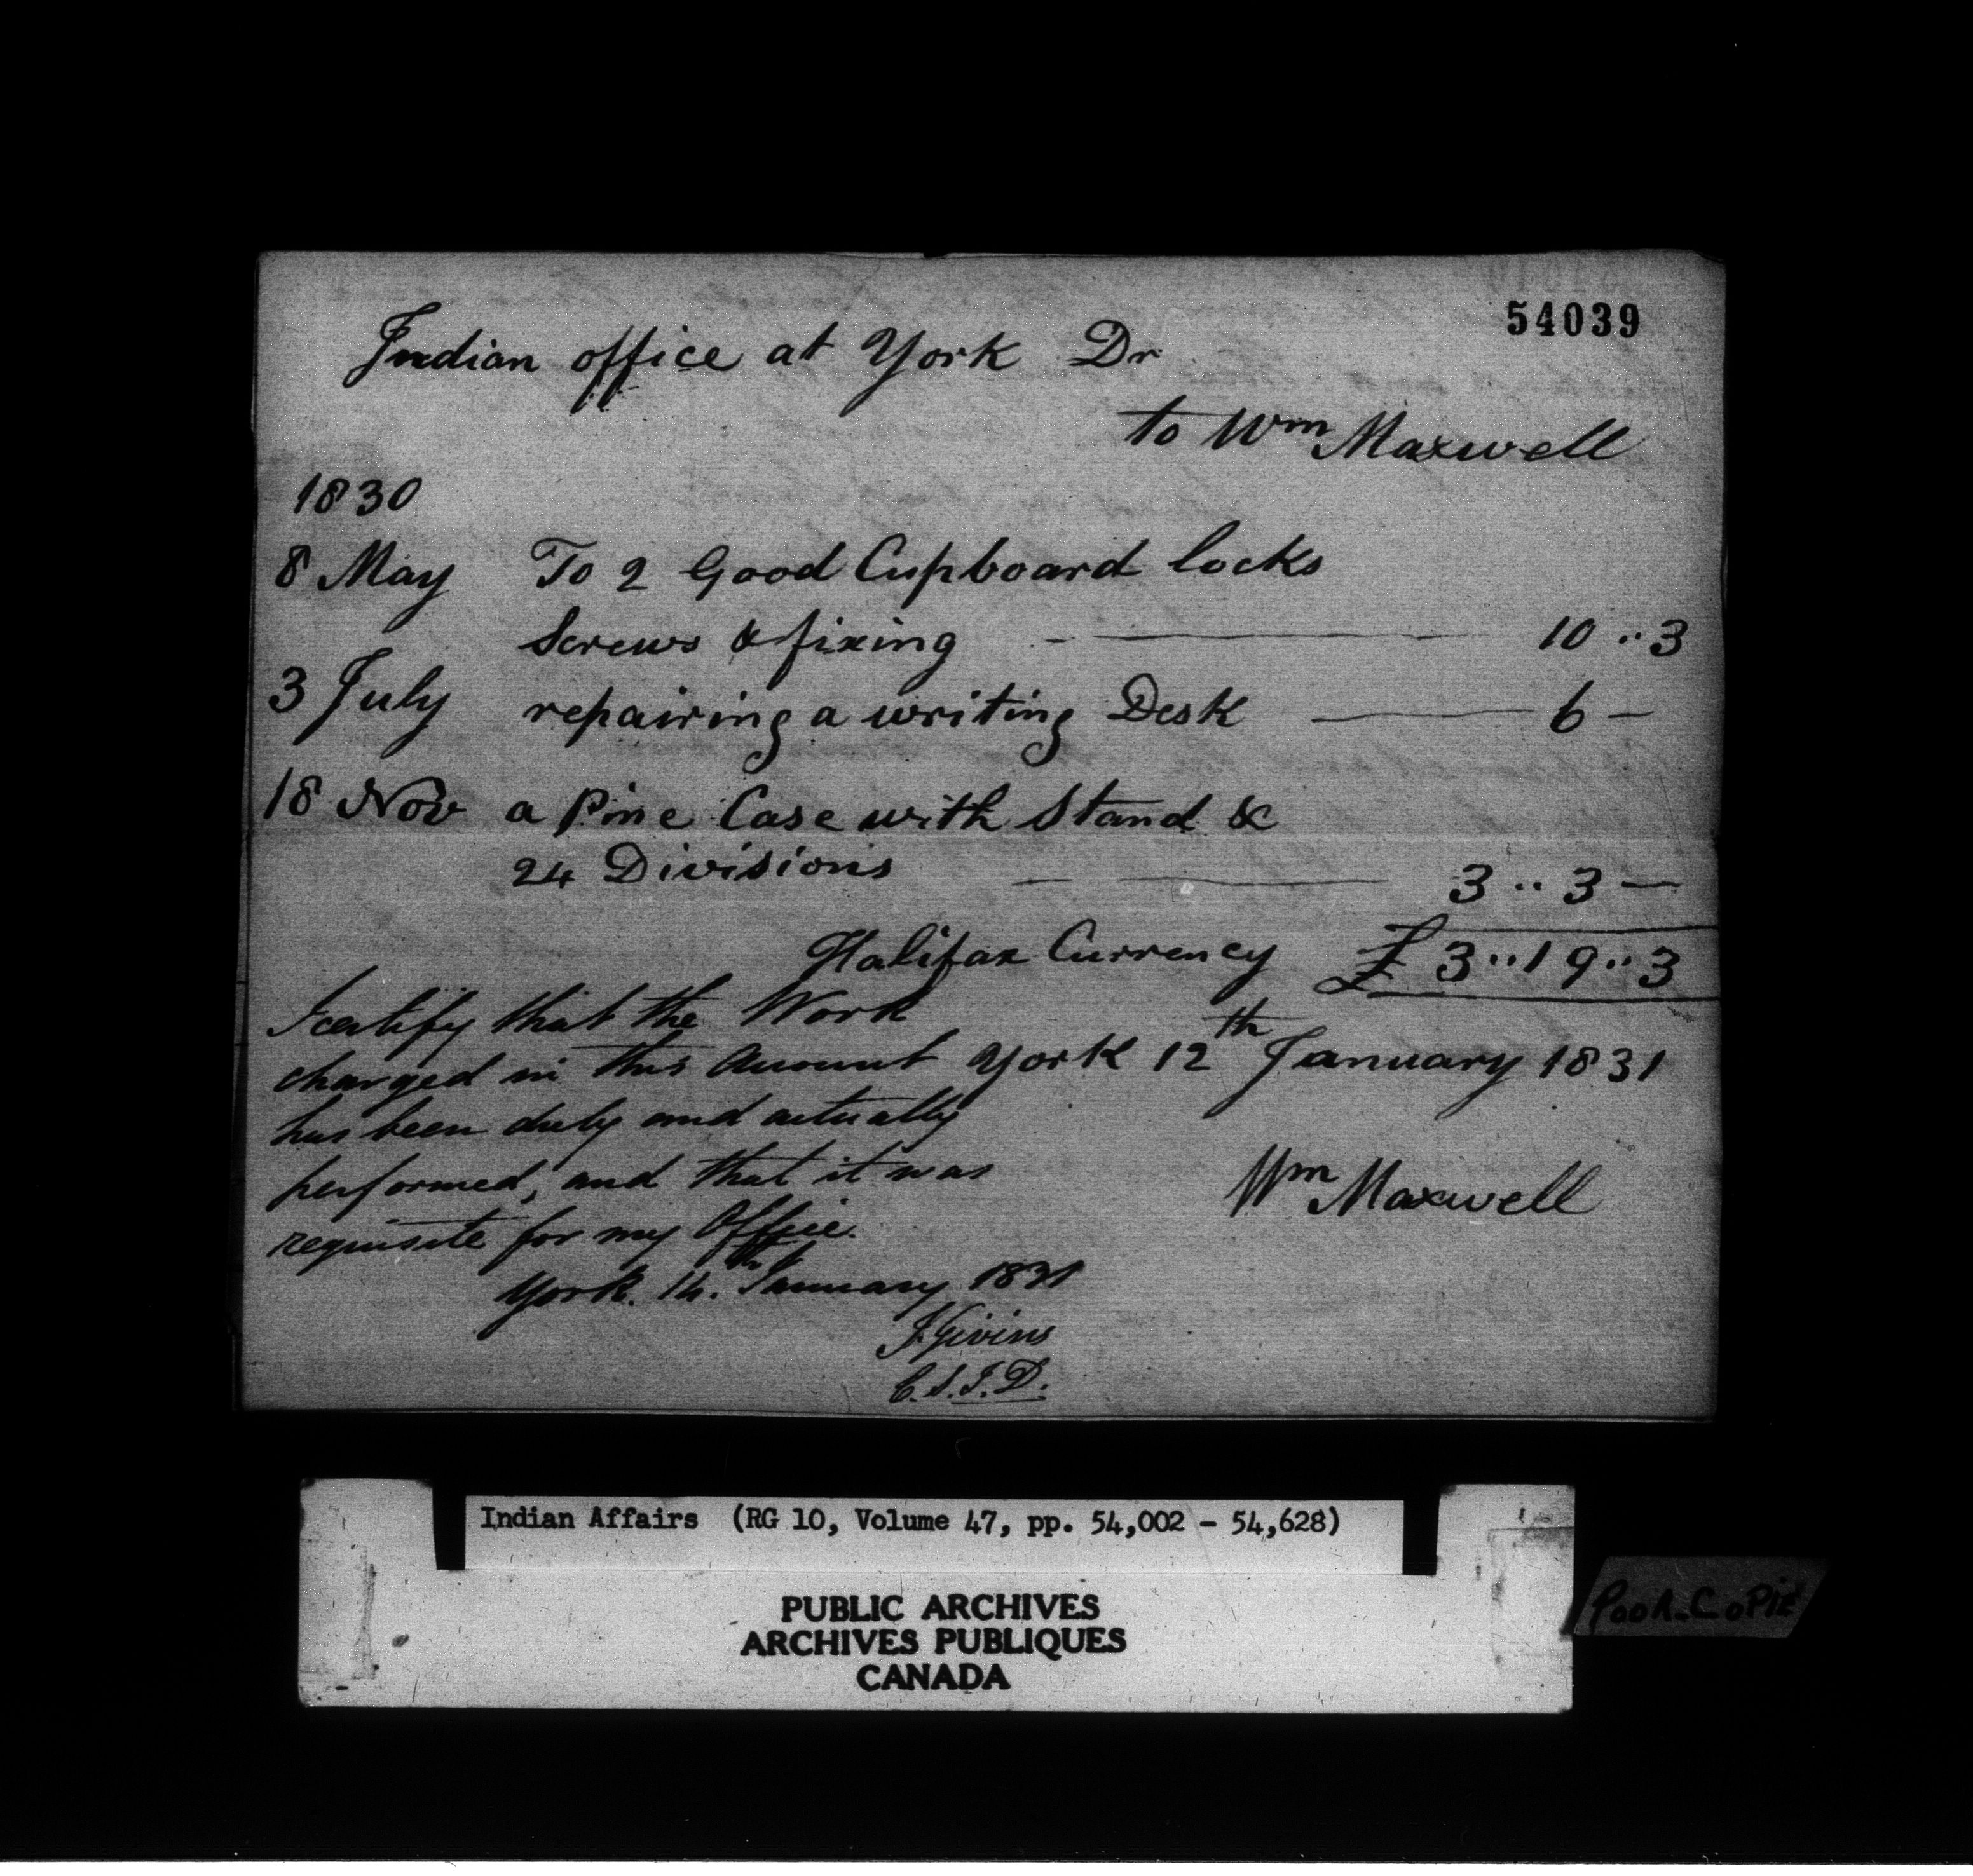 54039
Indian office at York Dr
to Wm Maxwell
1830
8 May To 2 Good Cupboard locks
Screws & fixing - — 10 .. 3
3 July repairing a writing Desk — 6 —
18 Nov a Pine Case with Stand &
24 Divisions — — 3 .. 3 —
Halifax Currency £ 3 .. 19 .. 3
I certify that the Work
charged in this Account
has been duly and actually
performed, and that it was
requisite for my Office.
York. 14th January 1831
J Givins
C.S.I.D.
York 12th January 1831
Wm Maxwell
Indian Affairs (RG 10, Volume 47, pp. 54,002 - 54,628)
PUBLIC ARCHIVES
ARCHIVES PUBLIQUES
CANADA
Poor-CoPie